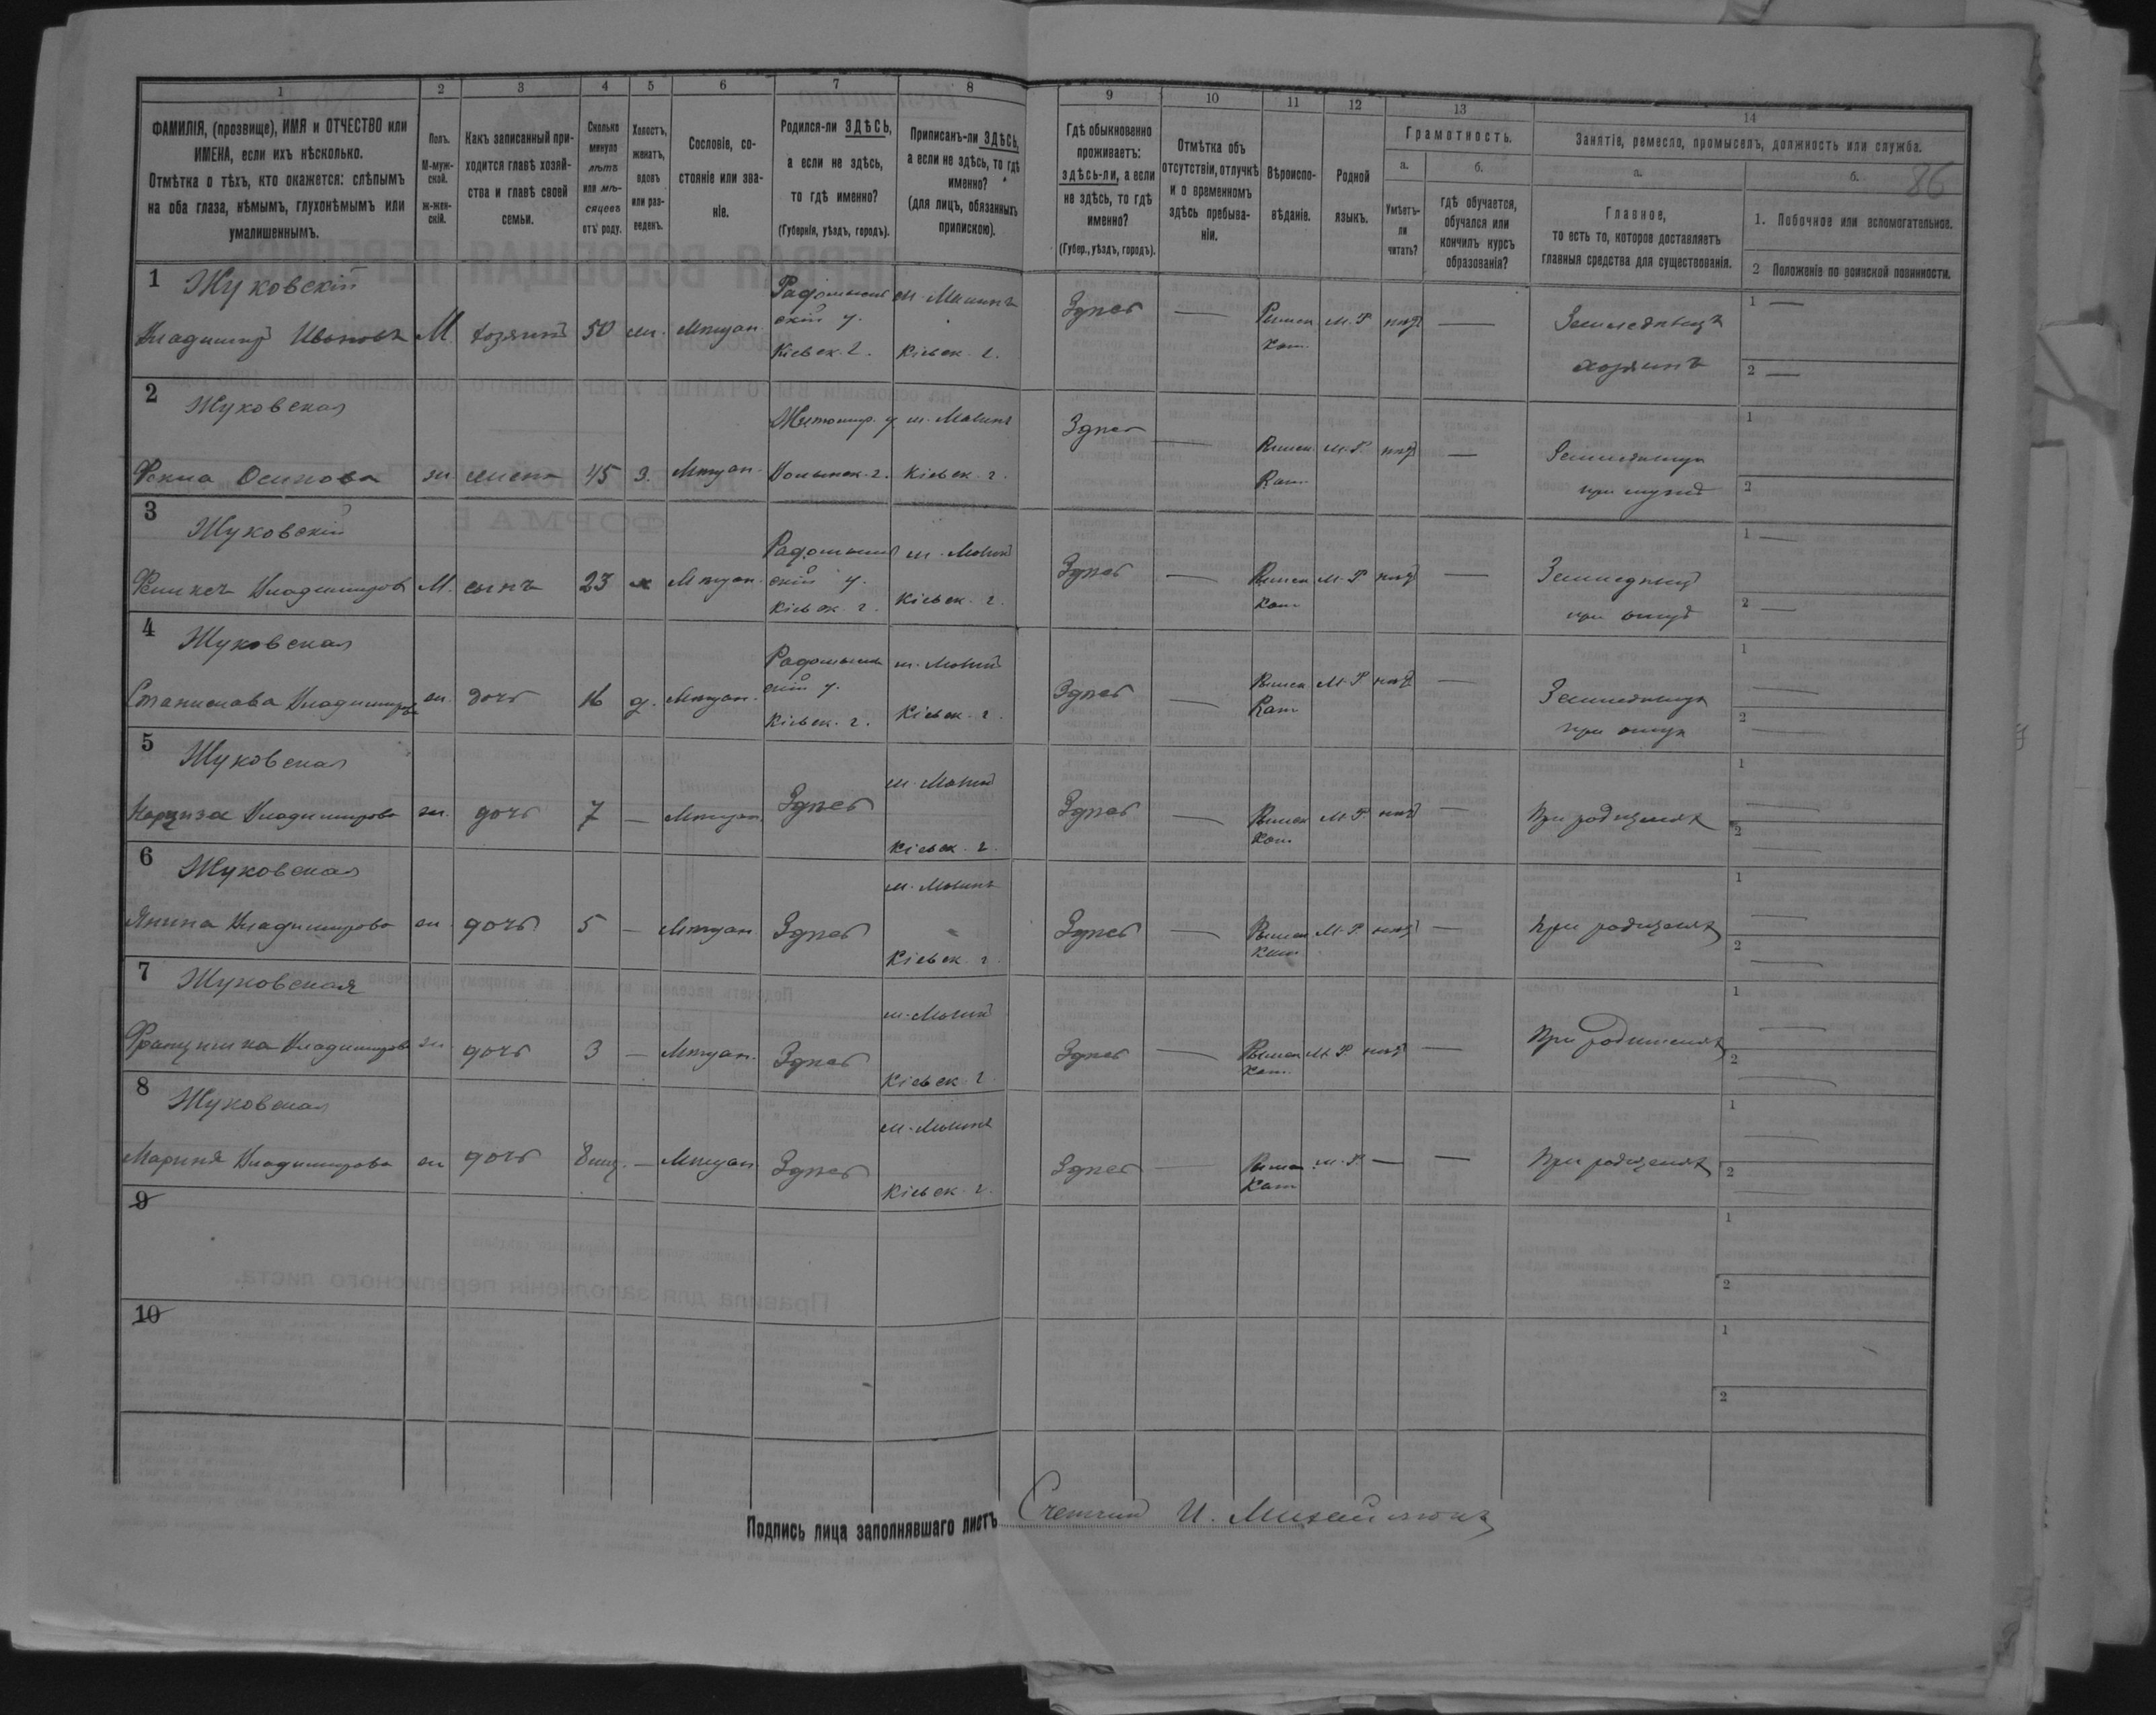 1 2 3 4 5 6 7 8 9 10 11 12 13 14
86
ФАМИЛІЯ, (прозвище), ИМЯ и ОТЧЕСТВО или
ИМЕНА, если ихъ нѣсколько.
Отмѣтка о тѣхъ, кто окажется: слѣпымъ
на оба глаза, нѣмымъ, глухонѣмымъ или
умалишеннымъ.
Полъ.
М-муж-
ской.
ж-жен-
скій.
Какъ записанный при-
ходится главѣ хозяй-
ства и главѣ своей
семьи.
Сколько
минуло
лѣтъ
или мѣ-
сяцевъ
отъ роду.
Холостъ,
женатъ,
вдовъ
или раз-
веденъ.
Сословіе, со-
стояніе или зва-
ніе.
Родился-ли ЗДѢСЬ,
а если не здѣсь,
то гдѣ именно?
(Губернія, уѣздъ, городъ).
Приписанъ-ли ЗДѢСЬ,
а если не здѣсь, то гдѣ
именно?
(для лицъ, обязанныхъ
припискою).
Гдѣ обыкновенно
проживаетъ:
здѣсь-ли, а если
не здѣсь, то гдѣ
именно?
(Губер., уѣздъ, городъ).
Отмѣтка объ
отсутствіи, отлучкѣ
и о временномъ
здѣсь пребыва-
ніи.
Вѣроиспо-
вѣданіе.
Родной
языкъ.
Грамотность.
а.
Умѣетъ-
ли
читать?
б.
гдѣ обучается,
обучался или
кончилъ курсъ
образованія?
Занятіе, ремесло, промыселъ, должность или служба.
а.
Главное,
то есть то, которое доставляетъ
главныя средства для существованія.
б.
1. Побочное или вспомогательное.
2 Положеніе по воинской повинности.
1 Жуковскій
Владимир Ивановъ М. хозяинъ 50 Мѣщан.
скій у.
Кіевск. г. Кіевск. г.
Здѣсь — Римск М. Р нѣтъ —
Кат.
Земледѣлецъ
хозяинъ
1 —
2 —
2 Жуковская
Осипова жена 45 З. Мѣщан.
Житомир. у м. Малинъ
Волынск. г. Кіевск. г.
Здѣсь — Римск М. Р. нѣтъ —
Кат.
при мужѣ
1
2
3 Жуковскій
Феликсъ Владимиров М. сынъ 23 х Мѣщан.
скій у.
Кіевск. г. Кіевск. г.
Здѣсь — Римск М. Р нѣтъ —
Кат
Земледѣлец
при отцѣ
1 —
2 —
4 Жуковская
Станислава Владимирова дочь 16 д. Мѣщан.
скій у.
Кіевск. г. Кіевск. г.
Здѣсь — Римск М. Р. нѣтъ —
Кат
при отцѣ
1 —
2 —
5 Жуковская
Нарциза Владимирова дочь 7 — Мѣщан. Здѣсь
м. Малин
Кіевск. г.
Здѣсь — Римск М. Р. нѣтъ —
Кат
1 —
2 —
6 Жуковская
Янина Владимирова дочь 5 — Мѣщан Здѣсь
м. Малинъ
Кіевск. г
Здѣсь — Римск М. Р. нѣтъ —
Кат
1 —
2 —
7 Жуковская
Францишка Владимирова дочь 3 — Мѣщан. Здѣсь
м. Малин
Кіевск г.
Здѣсь — Римск М. Р нѣтъ —
Кат.
При родителях
1 —
2 —
8 Жуковская
Марина Владимирова дочь 8 — Мѣщан Здѣсь
м. Малинъ
Кіевск. г.
Здѣсь — М. Р. — —
Кат
1 —
2 —
9
1
2
10
1
2
Подпись лица заполнявшаго листъ Счетчик И.